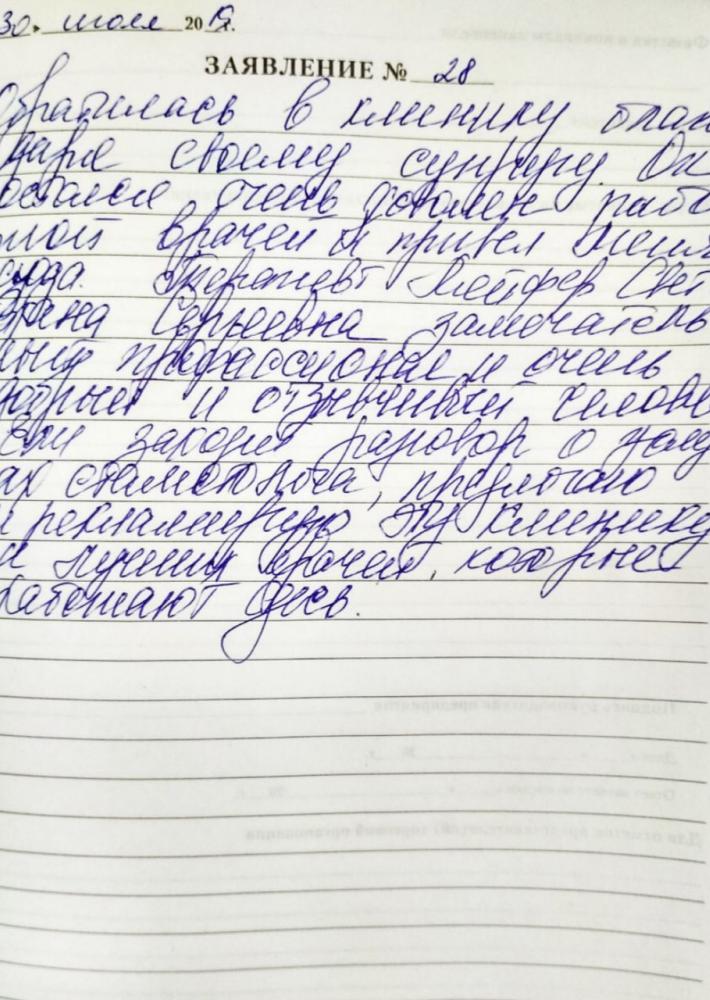 30 " июля 2019 г.
ЗАЯВЛЕНИЕ № 28
Обратилась в клинику благо
даря своему супругу. Он
остался очень доволен рабо
той врачей и привел меня
сюда. Терапевт Лейфер Свет
лана Сергеевна замечатель
ный профессионал и очень
добрый и отзывчивый челове
Если заходит разговор о услуг
ах стоматолога, предлагаю
и рекламирую эту клинику
и лучших врачей, которые
работают здесь.